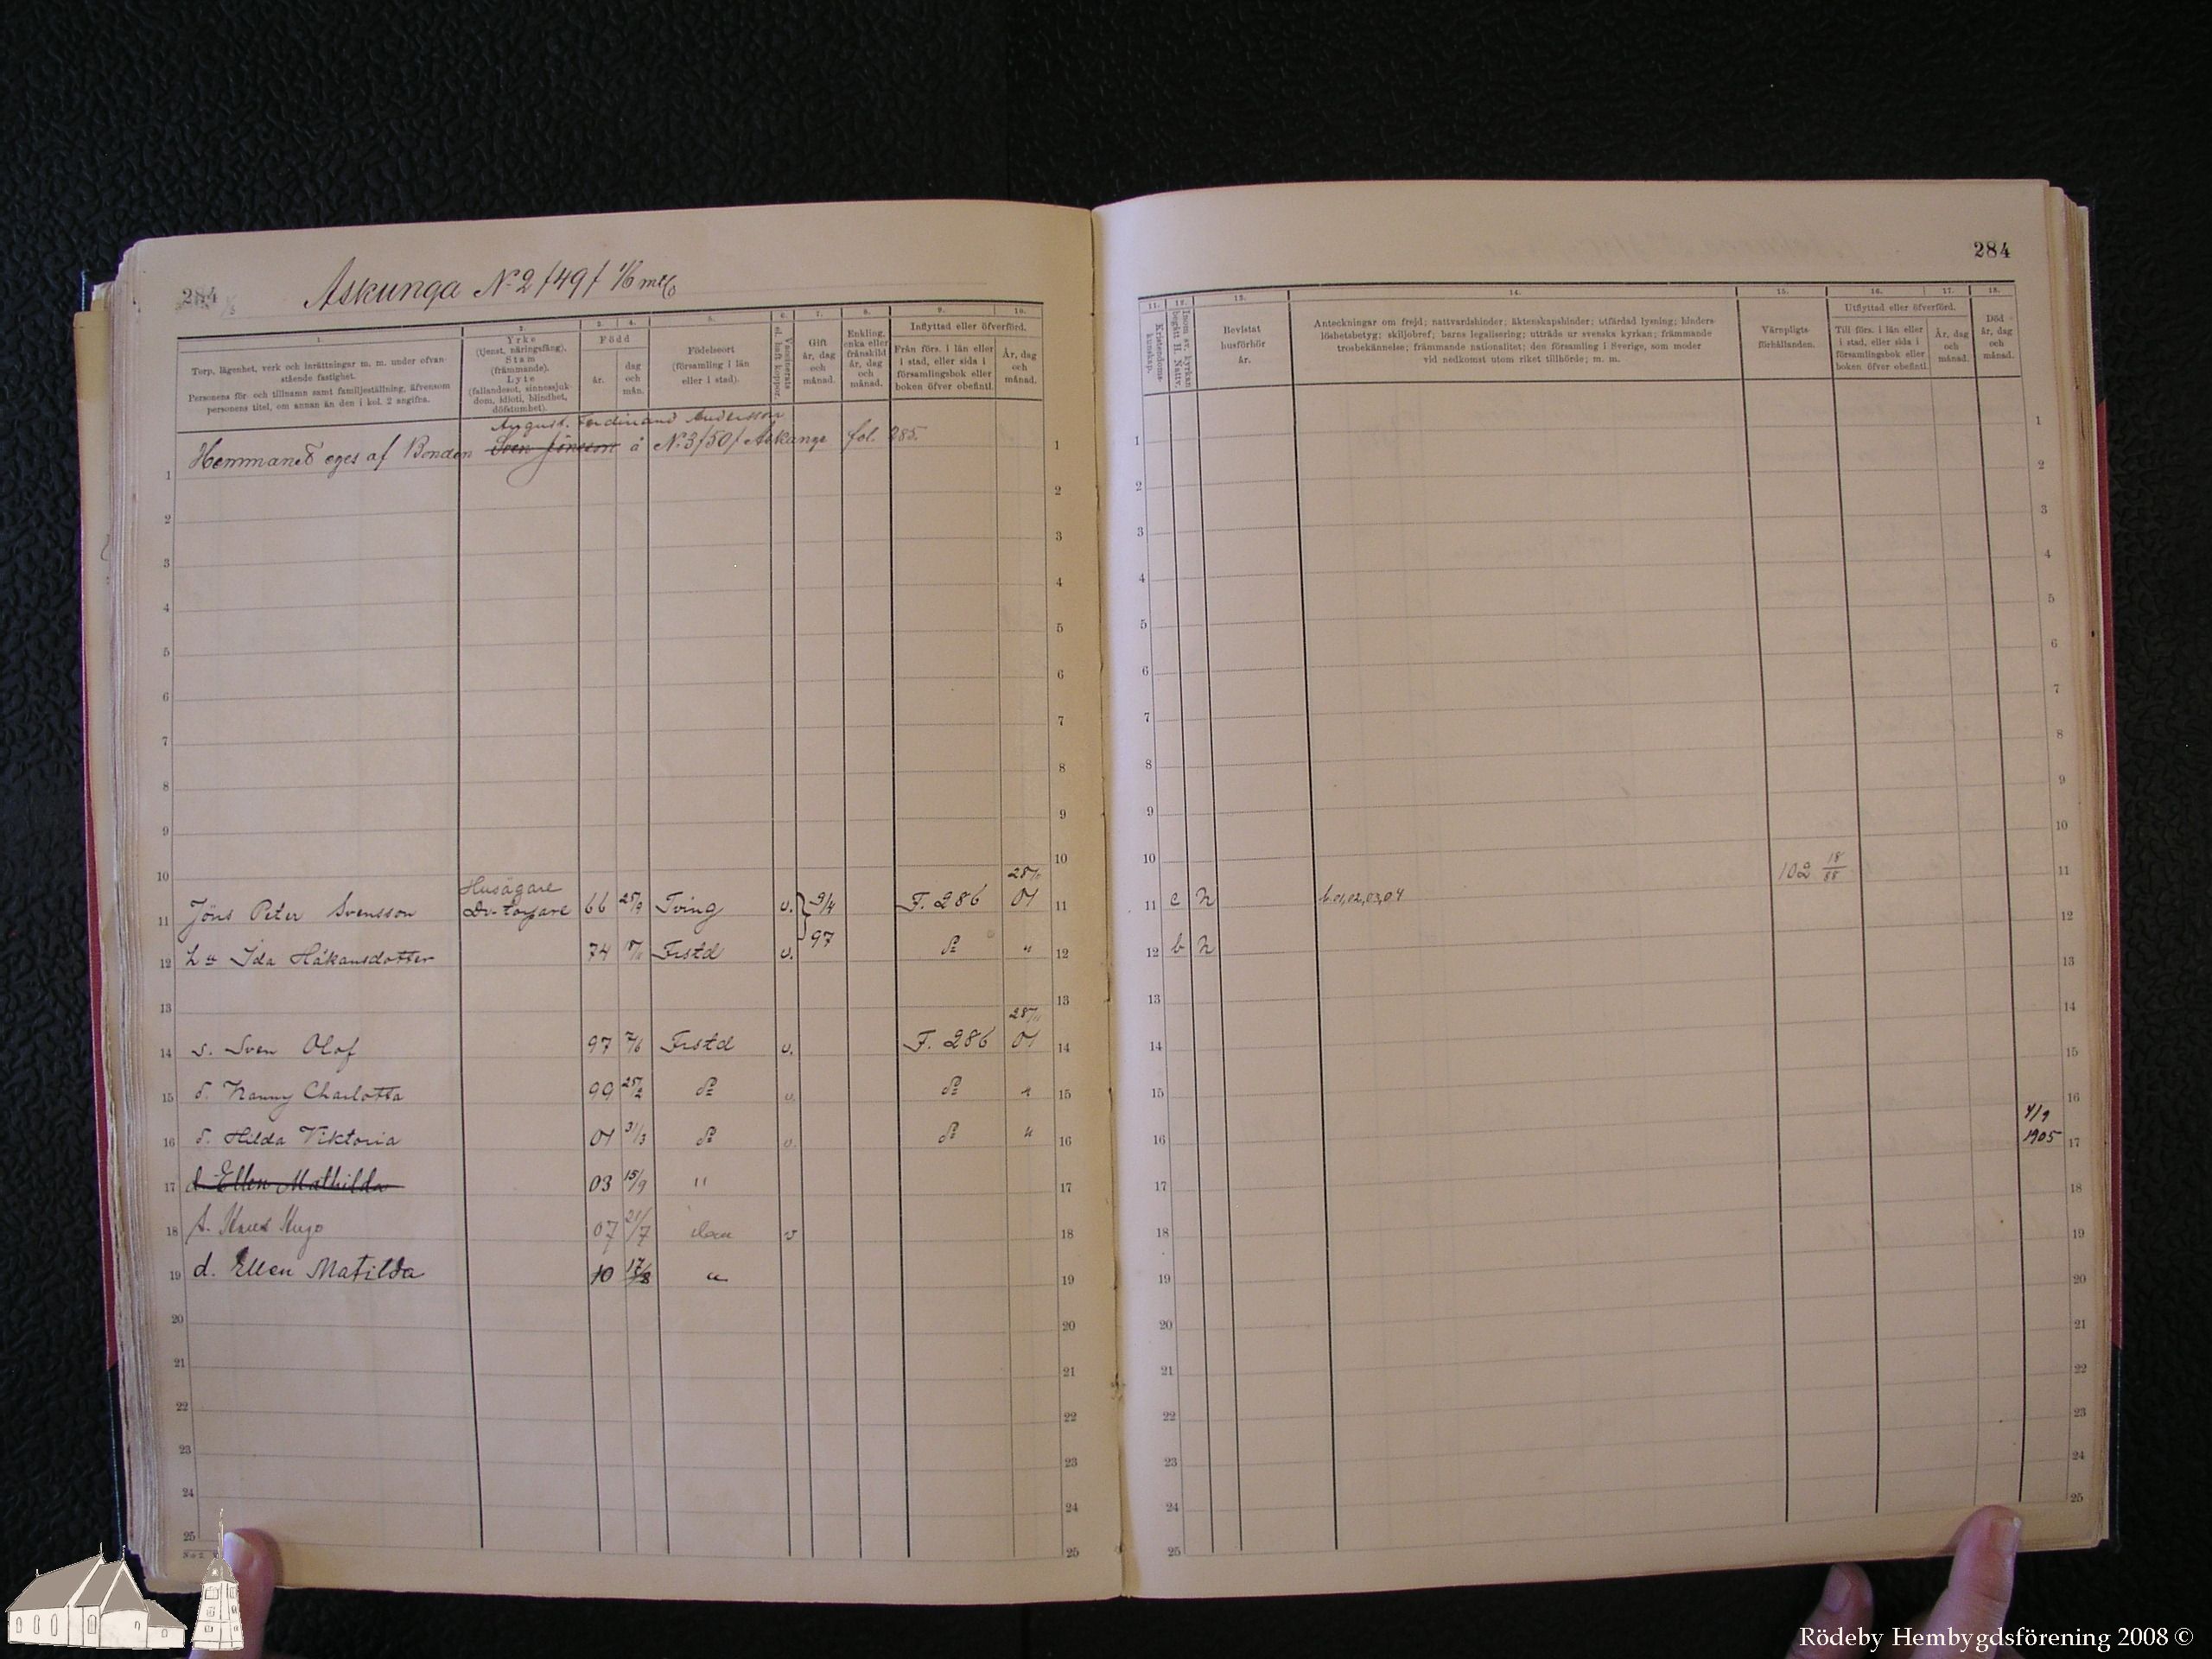 284
Askunga No 2 /49/ 1/6 mtl
1. 2. 3. 4. 5. 6. 7. 8. 9. 10.
Torp, lägenhet, verk och inrättningar m. m. under ofvan-
stående fastighet.
Personens för- och tillnamn samt familjeställning, äfvensom
personens titel, om annan än den i kol. 2 angifna.
Yrke
(tjenst, näringsfång),
Stam
(främmande).
Lyte
(fallandesot, sinnessjuk-
dom, idioti, blindhet,
döfstumhet).
Född
år.
dag
och
mån.
Födelseort
(församling i län
eller i stad).
Vaccinerats
el. haft koppor.
Gift
år, dag
och
månad.
Enkling,
enka eller
frånskild
år, dag
och
månad.
Inflyttad eller öfverförd.
Från förs. i län eller
i stad, eller sida i
församlingsbok eller
boken öfver obefintl.
År, dag
och
månad.
August Ferdinand Andersson
1 Hemmanet eges af Bonden Sven Jönsson å No 3/50/ Askunga fol. 285. 1
2 2
3 3
4 4
5 5
6 6
7 7
8 8
9 9
10 10
Husägare 28/11
11 Jöns Peter Svensson Du-torpare 66 25/9 Tving v. 9/4 F. 286 01 11
97
12 h u Ida Håkansdotter 74 Frstd v. do " 12
13 13
28/11
14 s. Sven Olof 97 7/6 Frstd v. F. 286 01 14
15 d. Nanny Charlotta 99 25/2 do v. do " 15
16 d. Hilda Viktoria 01 31/3 do v. do " 16
17 d. Ellen Mathilda 03 15/9 " 17
18 s. Knut Hugo 07 21/7 v 18
19 d. Ellen Matilda 10 17/8 " 19
20 20
21 21
22 22
23 23
24 24
25 25
No 2.
284
11. 12. 13. 14. 15. 16. 17. 18.
Kristendoms-
kunskap.
Inom sv. kyrkan
begått H. Nattv.
Bevistat
husförhör
år.
Anteckningar om frejd; nattvardshinder; äktenskapshinder; utfärdad lysning; hinders-
löshetsbetyg; skiljobref; barns legalisering; utträde ur svenska kyrkan; främmande
trosbekännelse; främmande nationalitet; den församling i Sverige, som moder
vid nedkomst utom riket tillhörde; m. m.
Värnpligts-
förhållanden.
Utflyttad eller öfverförd.
Till förs. i län eller
i stad, eller sida i
församlingsbok eller
boken öfver obefintl.
År, dag
och
månad.
Död
år, dag
och
månad.
1 1
2 2
3 3
4 4
5 5
6 6
7 7
8 8
9 9
10 10
102 18/88 11
11 c n b. 01,02,03,04 12
12 b n 13
13 14
14 15
15 16
4/9
16 1905 17
17 18
18 19
19 20
20 21
21 22
22 23
23 24
24 25
25
Rödeby Hembygdsförening 2008 ©